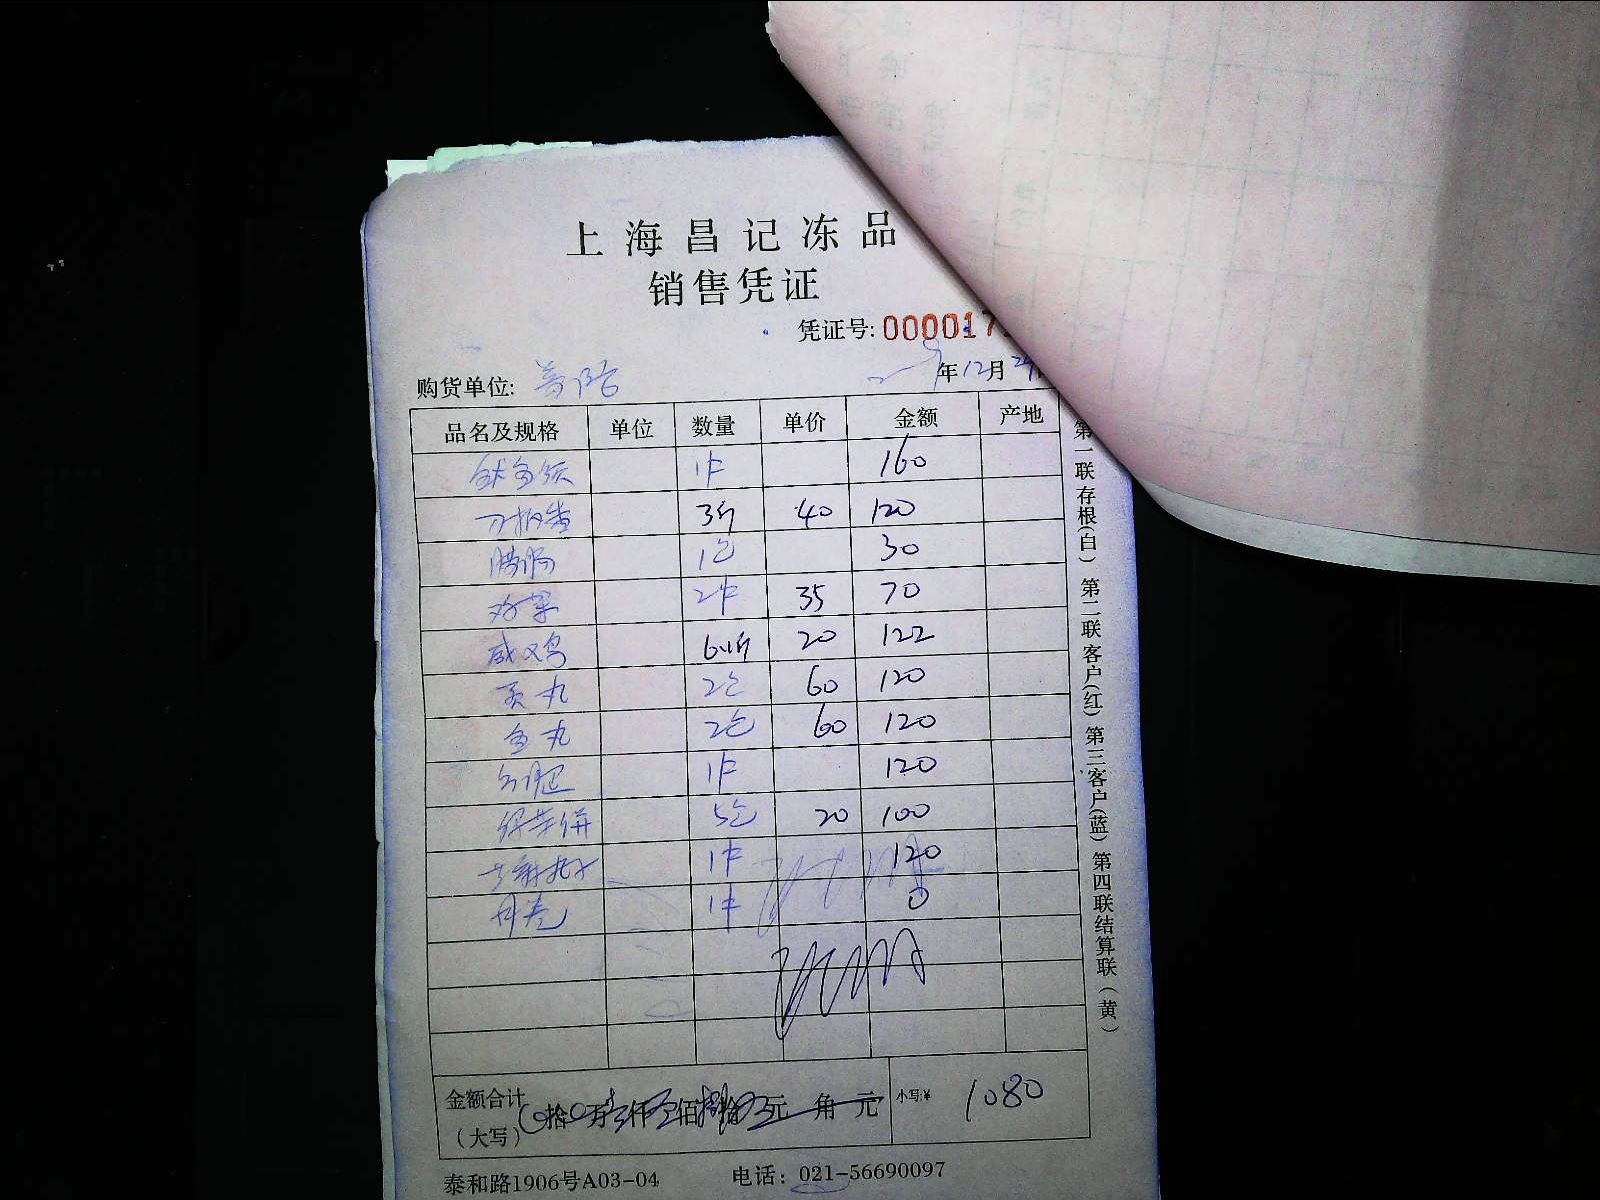 上海昌记冻品
销售凭证
凭证号: 000017
购货单位: 年12月24
品名及规格 单位 数量 单价 金额 产地
1件 160
3斤 40 120
腊肠 1包 30
2件 35 70
咸鸡 6.1斤 20 122
贡丸 2包 60 120
鱼丸 2包 60 120
1件 120
饼 5包 20 100
1件 120
1件 0
金额合计 拾 万 仟 佰 拾 元 角 元 小写:¥ 1080
（大写）
泰和路1906号A03-04 电话: 021-56690097
第一联存根(白) 第二联客户(红) 第三客户(蓝) 第四联结算联(黄)